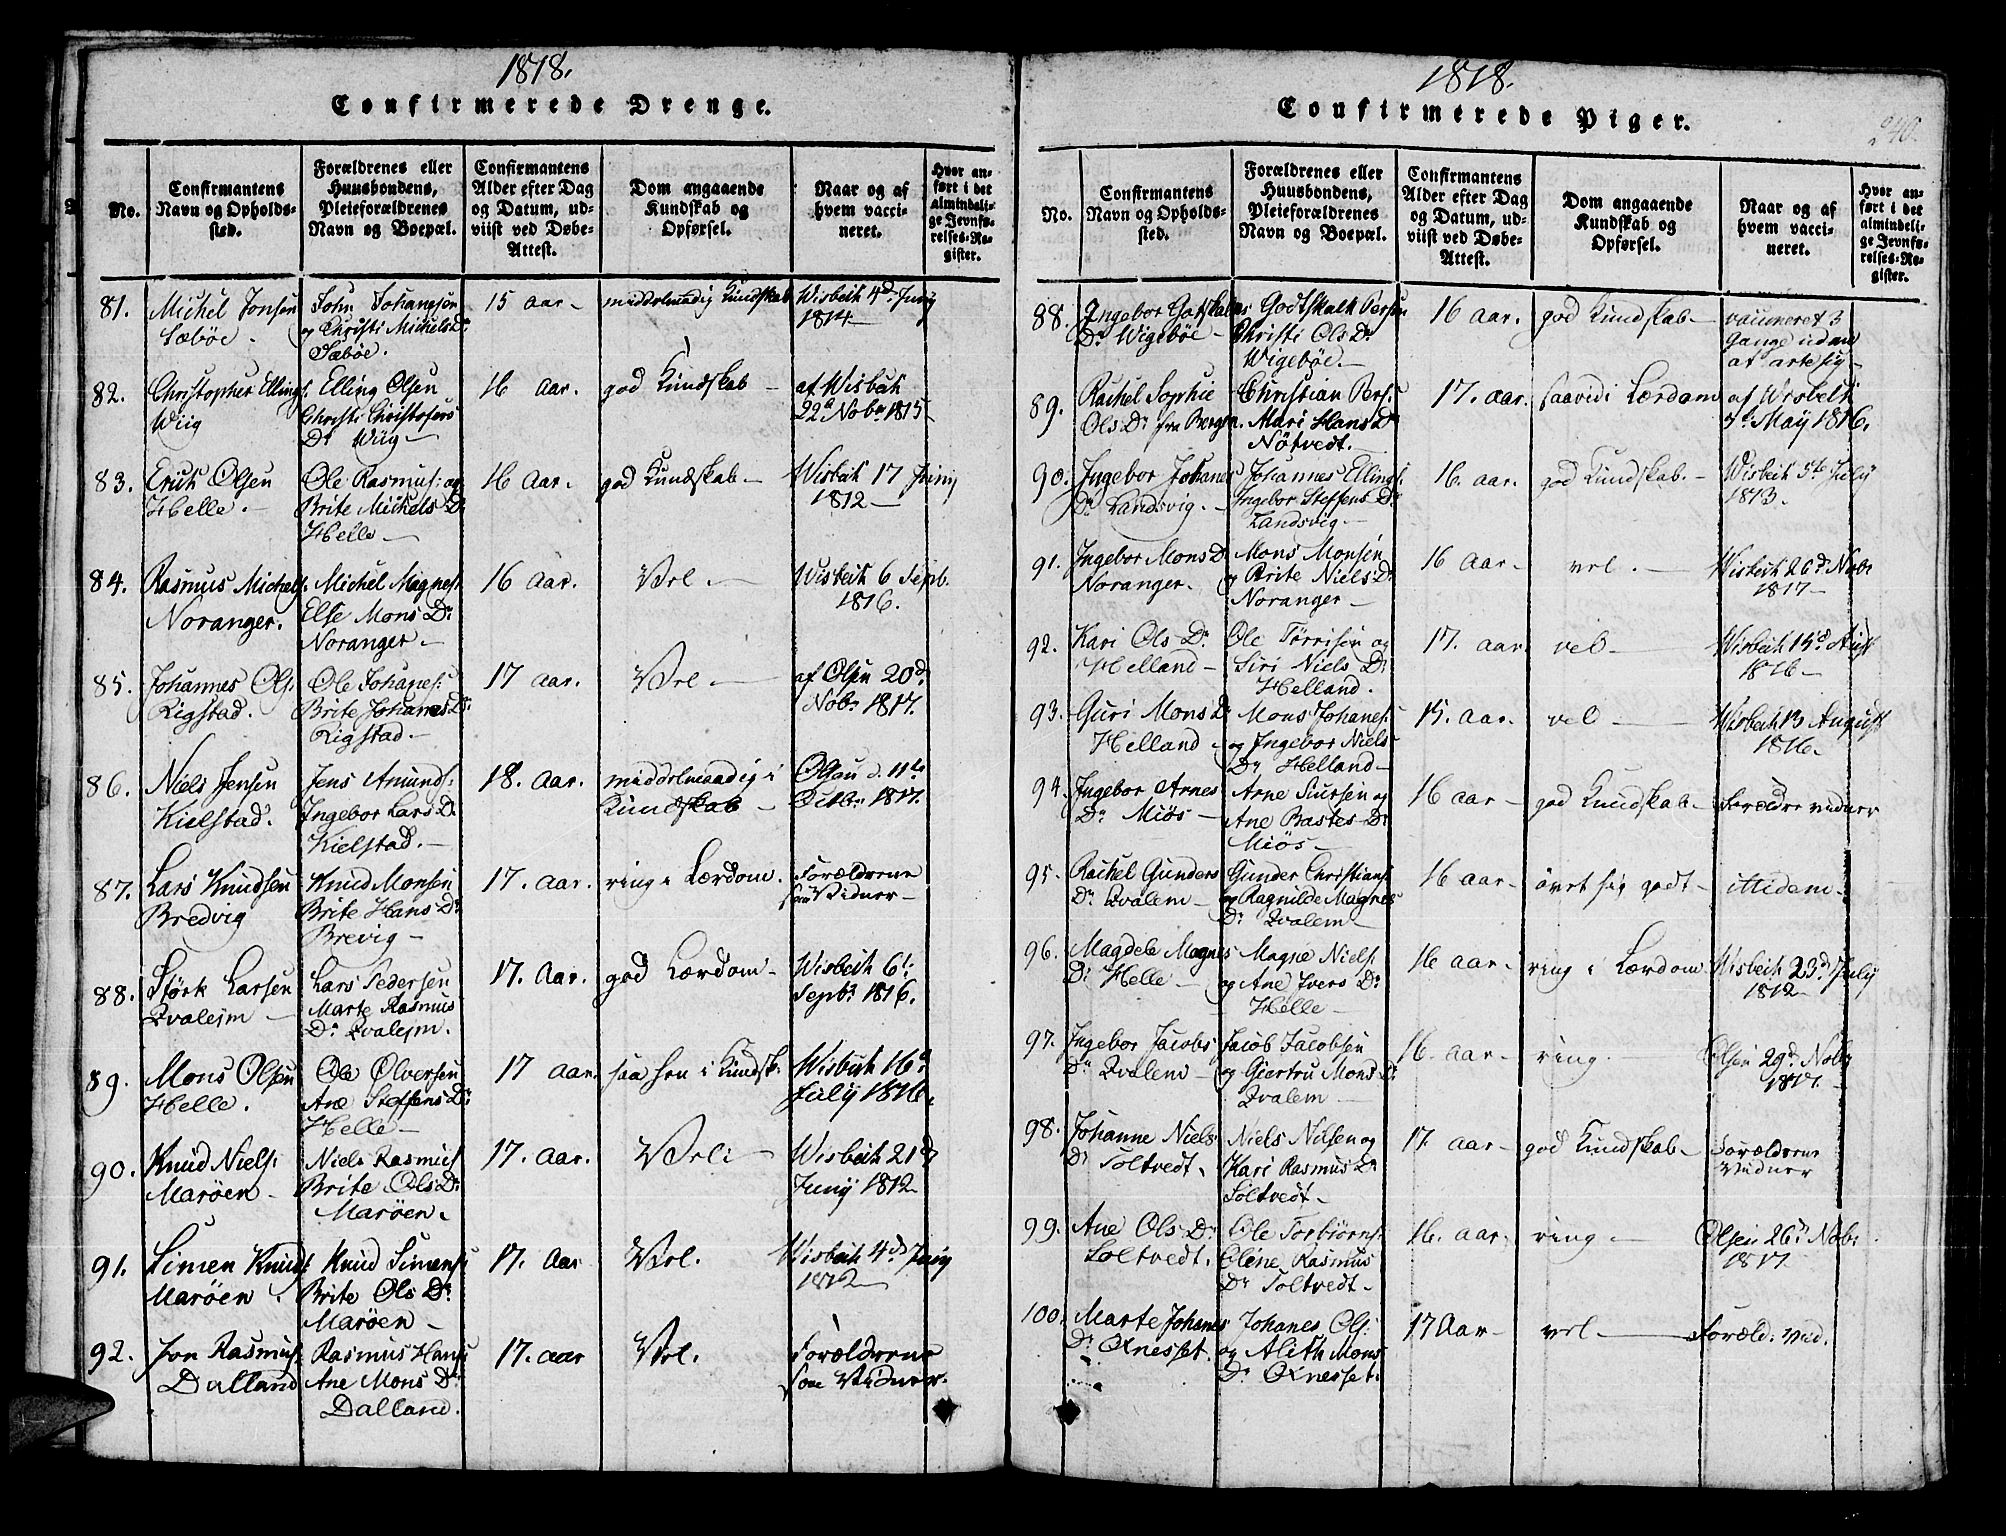 1818.
Confirmerede Drenge.
No.
Confirmantens
Navn og Opholds-
sted.
Forældrenes eller
Huusbondens,
Pleieforældrenes
Navn og Boepæl.
Confirmantens
Alder efter Dag
og Datum, ud-
viist ved Døbe-
Attest.
Dom angaaende
Kundskab og
Opførsel.
Naar og af
hvem vacci-
neret.
Hvor an-
ført i det
almindeli-
ge Jevnfø-
relses-Re-
gister.
81.
Michel Jonsen
Sæbøe.
John Johansen
og Christi Michels Dr
Sæbøe.
15 aar -
middelmaadig Kundskab
Wisbech 4d Juny
1814
82.
Christopher Ellings:
Wiig
Elling Olsen
Christi Christofers
Dr Wiig -
16 aar.
god Kundskab -
af Wisbech
22d Nobr 1815
83.
Erich Olsen
Helle.
Ole Rasmus: og
Brite Michels Dr
Helle -
16 Aar.
god Kundskab -
Wisbech 17 Juny
1812 -
84.
Rasmus Michels:
Noranger.
Michel Magnes:
Else Mons Dr
Noranger -
16 Aar.
Vel. -
Wisbech 6 Sepb.
1816.
85.
Johannes Ols:
Rigstad.
Ole Johanes:
Brite Johanes Dr
Rigstad.
17 Aar.
Vel. -
af Olsen 20d
Nobr 1817.
86.
Niels Jensen
Kielstad.
Jens Amunds:
Ingebor Lars Dr
Kielstad. -
18. Aar.
middelmaadig i
Kundskab -
Olsen d. 11te
Octbr 1817.
87.
Lars Knudsen
Bredvig
Knud Monsen
Brite Hans Dr
Brevig -
17. Aar.
ring i Lærdom.
Forældrene
som Vidner -
88.
Størk Larsen
Qvalejm -
Lars Pedersen
Marte Rasmus
Dr Qvalejm.
17. Aar.
god Lærdom -
Wisbech 6t
Septbr 1816.
89.
Mons Olsen
Helle.
Ole Olversen
Ane Steffens Dr
Helle -
17 aar.
saa hen i Kundsk:
Wisbech 16d
July 1816.
90.
Knud Niels:
Marøen -
Niels Rasmus
Brite Ols Dr
Marøen.
17. Aar.
Vel:
Wisbech 21d
Juny 1812
91.
Simen Knuds
Marøen.
Knud Simens:
Brite Ols Dr
Marøen -
17. Aar
Vel.
Wisbech 4d Juny
1812 -
92.
Jon Rasmus:
Dalland
Rasmus Hans
Ane Mons Dr
Dalland.
17. aar
Vel.
Forældrene
som Vidner.
1818.
Confirmerede Piger.
240.
No.
Confirmantens
Navn og Opholds-
sted.
Forældrenes eller
Huusbondens,
Pleieforældrenes
Navn og Boepæl.
Confirmantens
Alder efter Dag
og Datum, ud-
viist ved Døbe-
Attest.
Dom angaaende
Kundskab og
Opførsel.
Naar og af
hvem vacci-
neret.
Hvor an-
ført i det
almindeli-
ge Jevnfø-
relses-Re-
gister.
88.
Ingebor Gotskalks
Dr Wigebøe -
Godtskalk Persen
Christi Ols Dr
Wigebøe -
16 Aar.
god Kundskab -
vaccineret 3
Gange uden
at arte sig -
89.
Rachel Sophie
Ols Dr fra Bergen.
Christian Pers:
Mari Hans Dr
Nøtvedt.
17. aar.
saavid i Lærdom
af Wisbech
7d May 1816.
90.
Ingebor Johanes
Dr Landsvig. -
Johannes Ellings:
Ingebor Steffens Dr
Landsvig -
16. aar.
god Kundskab. -
Wisbech 5te July
1813.
91.
Ingebor Mons Dr
Noranger.
Mons Monsen
og Brite Niels Dr
Noranger -
16 aar.
vel. -
Wisbech 26d Nobr
1817 -
92.
Kari Ols Dr
Helland -
Ole Tørrisen og
Siri Niels Dr
Helland.
17. aar.
vel -
Wisbech 15d Aust
1816 -
93.
Guri Mons Dr
Helland -
Mons Johanes:
og Ingebor Niels
Dr Helland -
15. Aar.
vel -
Wisbech 13 August
1816.
94.
Ingebor Arnes
Dr Miøs -
Arne Siursen og
Ane Bastes Dr
Miøs -
16 aar -
god Kundskab -
Forældre vidner
95.
Rachel Gunders
Dr Qvalem -
Gunder Christians:
og Ragnilde Magnes
Dr Qvalem -
16 aar -
øvet sig godt -
ittidem -
96.
Magdele Magnes
Dr Helle -
Magne Niels:
og Ane Ivers Dr
Helle -
16 aar -
ring i Lærdom
Wisbech 23d July
1812 -
97.
Ingebor Jacobs
Dr Qvalem -
Jacob Jacobsen
og Giertru Mons Dr
Qvalem -
16. aar -
ring.
Olsen 29d Nobr
1817. -
98.
Johanne Niels
Dr Toltvedt.
Niels Nilsen og
Kari Rasmus Dr
Soltvedt -
17. aar -
god Kundskab -
Forældrene
Vidner
99.
Ane Ols Dr
Soltvedt.
Ole Torbiørns:
Oline Rasmus
Dr Soltvedt -
16. aar.
ring. -
Olsen 26d Nobr
1817.
100.
Marte Johanes
Dr Oxnesset.
Johanes Ols:
og Alith Mons
Dr Oxnesset.
17 Aar -
vel -
Foræld: vid.